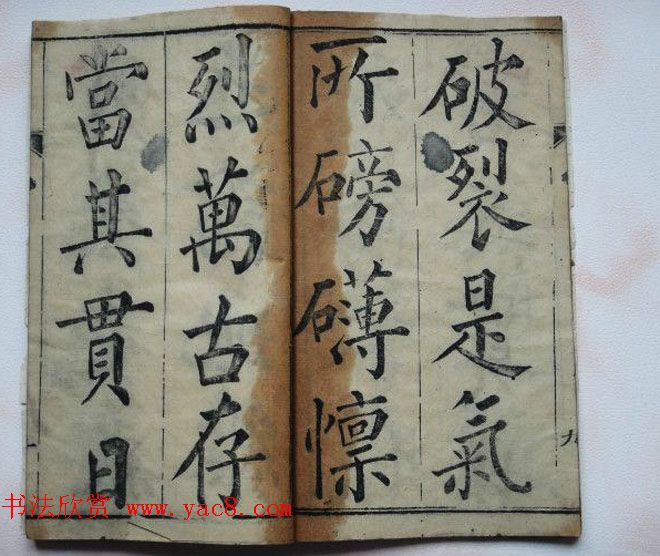 破裂是氣
所磅礴懍
烈萬古存
當其貫日
九
书法欣赏 www.yac8.com